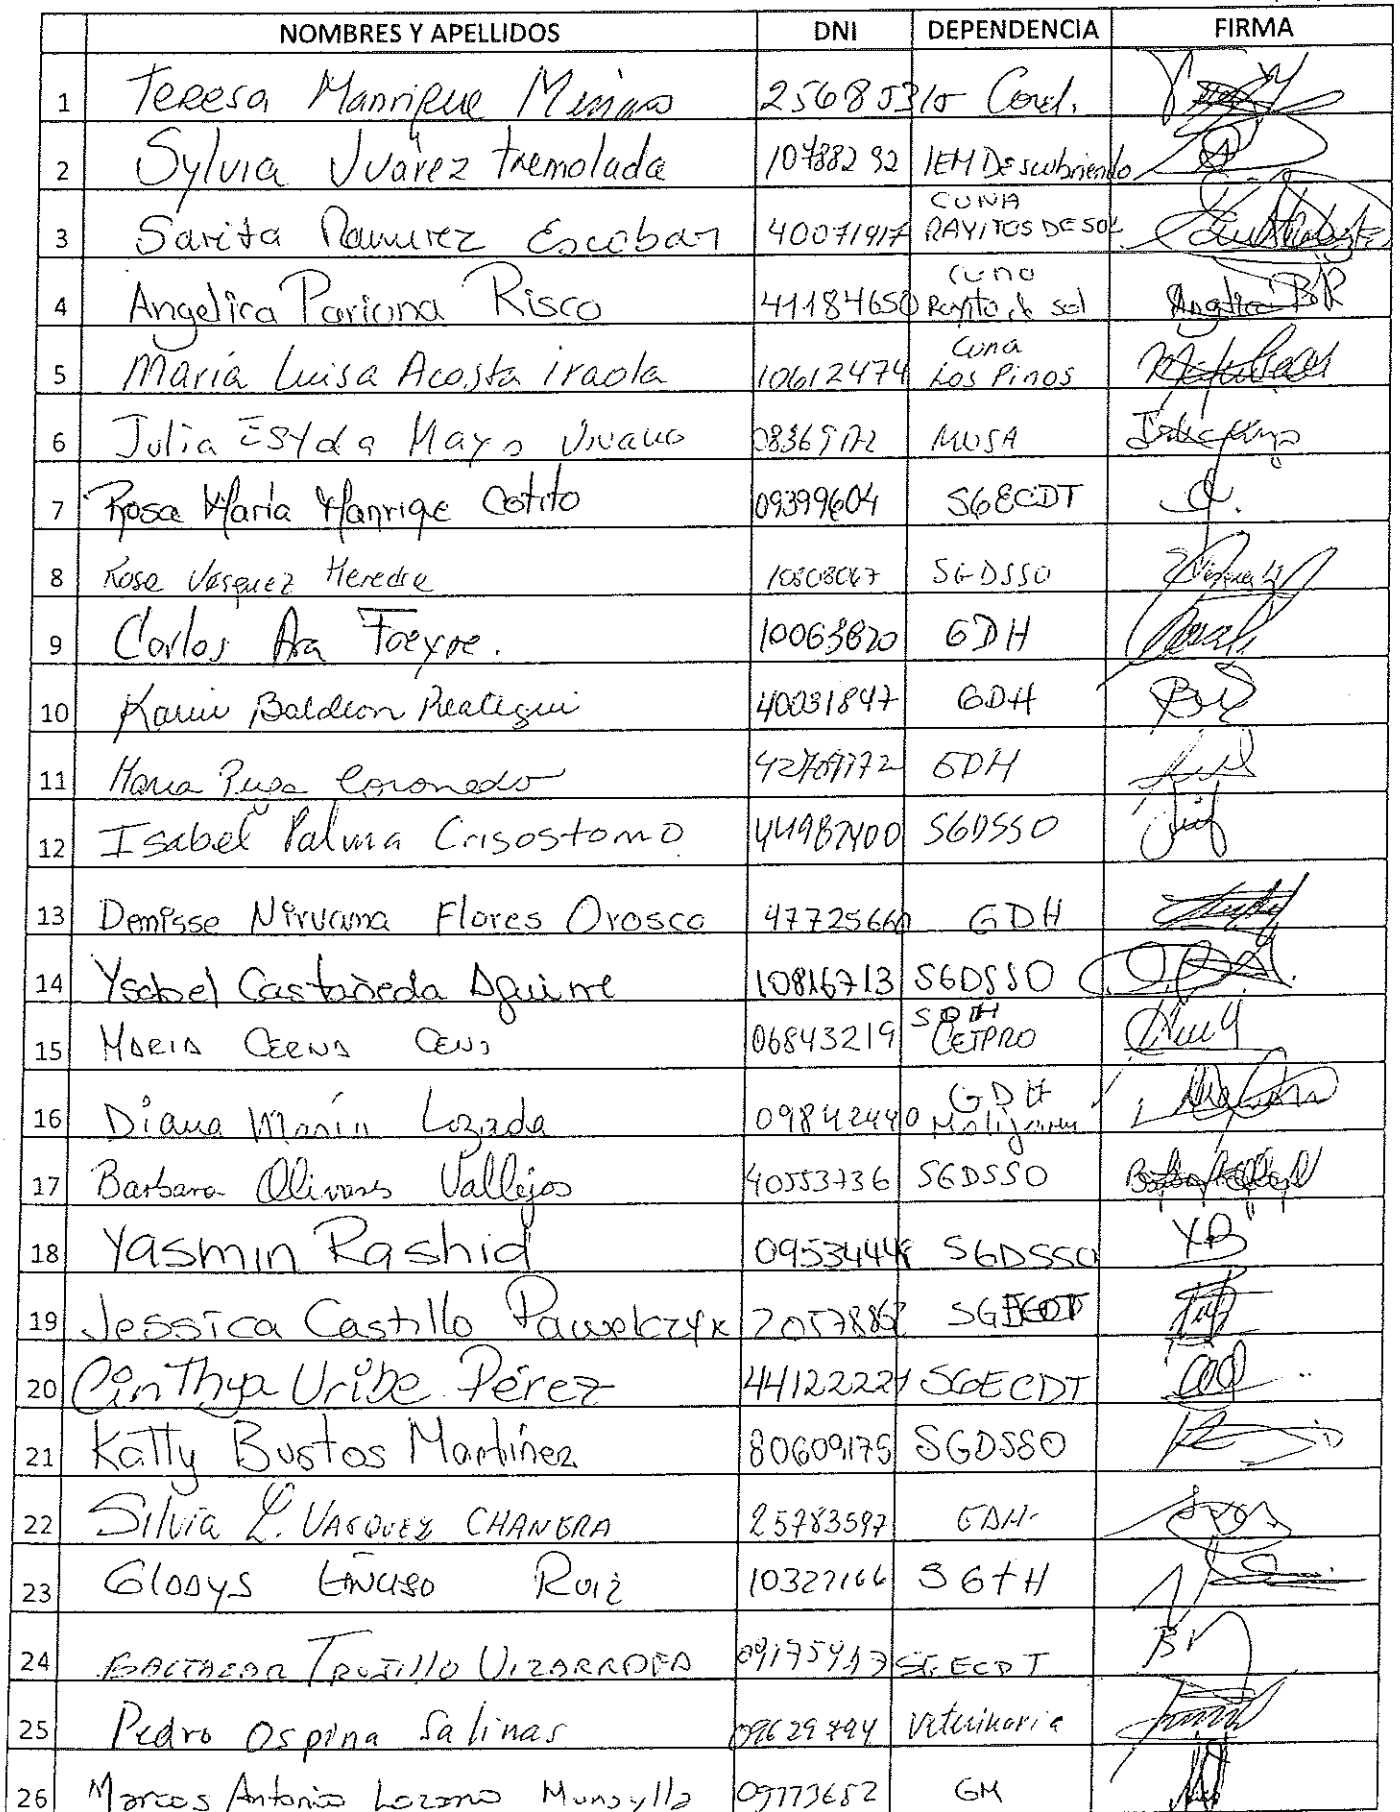 NOMBRES Y APELLIDOS DNI DEPENDENCIA FIRMA
1 Teresa Manrique
2 Sylvia Juárez Tremolada 10788292 IEM Descubriendo
CUNA
3 Sarita Ramirez Escobar 40071917 RAYITOS DE SOL
Cuna
4 Angelica Pariona Risco 41184650 Rayito de sol
Cuna
5 María Luisa Acosta iraola 10612474 Los Pinos
6 Julia ESYda Mayo MUSA
7 Rosa María Manrique Cotito 09399604 SGECDT
8 Rosa Vasquez Heredia SGDSSO
9 Carlos Ara 10063820 GDH
10 Karin Baldeon Reategui 40031847 GDH
11 Maria Puga Coronado GDH
12 Isabel Palma Crisostomo 44987400 SGDSSO
13 Denisse Nirvana Flores Orosco 47725660 GDH
14 Ysabel Castañeda Aguirre 10816713 SGDSSO
15 MARIA CERNA 06843219 CETPRO
GDH
16 Diana Marín Lozada 09842440
17 Barbara Olivares Vallejos 40553736 SGDSSO
18 Yasmin Rashid SGDSSO YR
19 Jessica Castillo Pawelczyk
20 Cinthya Uribe Pérez 44122221 SGECDT
21 Katty Bustos Martínez 80609175 SGDSSO
22 Silvia L. VASQUEZ CHANGRA 25783597 GDH
23 GLADYS Ruiz 10327166
24 BALTAZAR TRUJILLO SGECDT
25 Pedro Ospina Salinas 09629794 Veterinaria
26 Marcos Antonio Lozano 09773652 GM